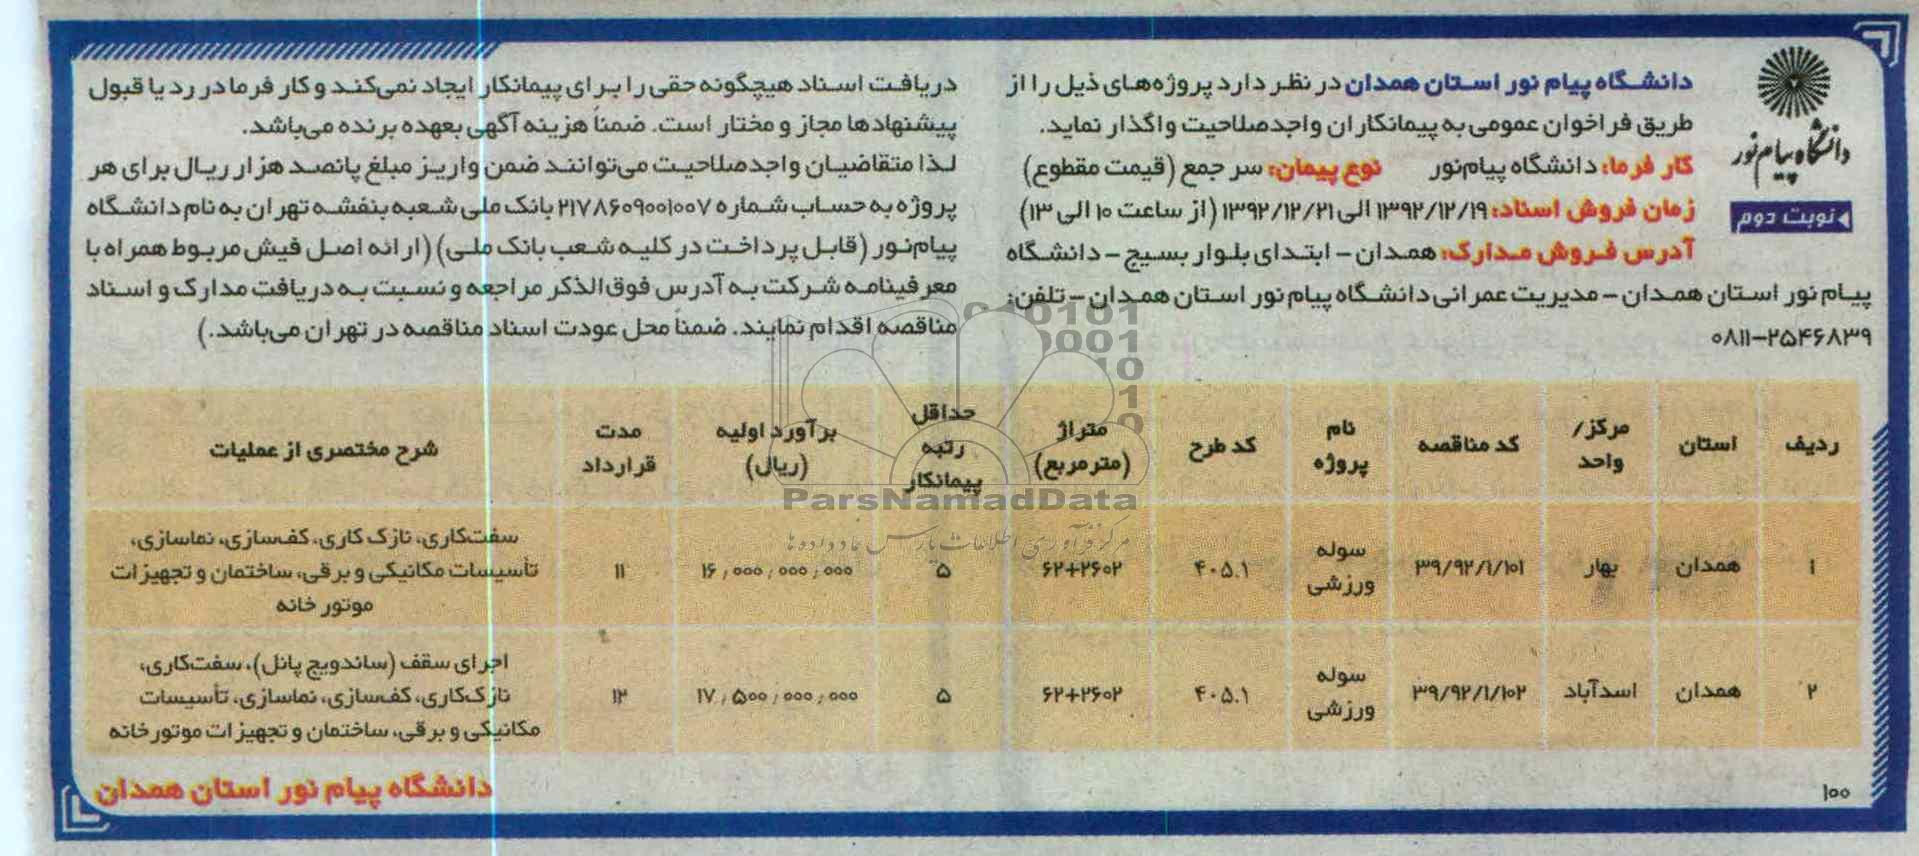 دانشگاه پیام نور
◄نوبت دوم
دانشگاه پیام نور استان همدان در نظر دارد پروژه‌های ذیل را از
طریق فراخوان عمومی به پیمانکاران واجدصلاحیت واگذار نماید.
کار فرما: دانشگاه پیام‌نور نوع پیمان: سر جمع (قیمت مقطوع)
زمان فروش اسناد: ۱۳۹۲/۱۲/۱۹ الی ۱۳۹۲/۱۲/۲۱ (از ساعت ۱۰ الی ۱۳)
آدرس فروش مدارک: همدان – ابتدای بلوار بسیج – دانشگاه
پیام نور استان همدان – مدیریت عمرانی دانشگاه پیام نور استان همدان – تلفن:
۰۸۱۱-۲۵۴۶۸۳۹
دریافت اسناد هیچگونه حقی را برای پیمانکار ایجاد نمی‌کند و کار فرما در رد یا قبول
پیشنهادها مجاز و مختار است. ضمناً هزینه آگهی بعهده برنده می‌باشد.
لذا متقاضیان واجدصلاحیت می‌توانند ضمن واریز مبلغ پانصد هزار ریال برای هر
پروژه به حساب شماره ۲۱۷۸۶۰۹۰۰۱۰۰۷ بانک ملی شعبه بنفشه تهران به نام دانشگاه
پیام‌نور (قابل پرداخت در کلیه شعب بانک ملی) (ارائه اصل فیش مربوط همراه با
معرفینامه شرکت به آدرس فوق‌الذکر مراجعه و نسبت به دریافت مدارک و اسناد
مناقصه اقدام نمایند. ضمناً محل عودت اسناد مناقصه در تهران می‌باشد.)
ردیف استان مرکز/واحد کد مناقصه نام پروژه کد طرح متراژ (مترمربع) حداقل رتبه پیمانکار برآورد اولیه (ریال) مدت قرارداد شرح مختصری از عملیات
۱ همدان بهار ۳۹/۹۲/۱/۱۰۱ سوله ورزشی ۴۰۵.۱ ۶۲+۲۶۰۲ ۵ ۱۶,۰۰۰,۰۰۰,۰۰۰ ۱۱ سفت‌کاری، نازک کاری، کف‌سازی، نماسازی،
تأسیسات مکانیکی و برقی، ساختمان و تجهیزات
موتور خانه
۲ همدان اسدآباد ۳۹/۹۲/۱/۱۰۲ سوله ورزشی ۴۰۵.۱ ۶۲+۲۶۰۲ ۵ ۱۷,۵۰۰,۰۰۰,۰۰۰ ۱۲ اجرای سقف (ساندویچ پانل)، سفت‌کاری،
نازک‌کاری، کف‌سازی، نماسازی، تأسیسات
مکانیکی و برقی، ساختمان و تجهیزات موتورخانه
۱۰۰
دانشگاه پیام نور استان همدان
ParsNamadData
مرکز فرآوری اطلاعات پارس نماد داده ها